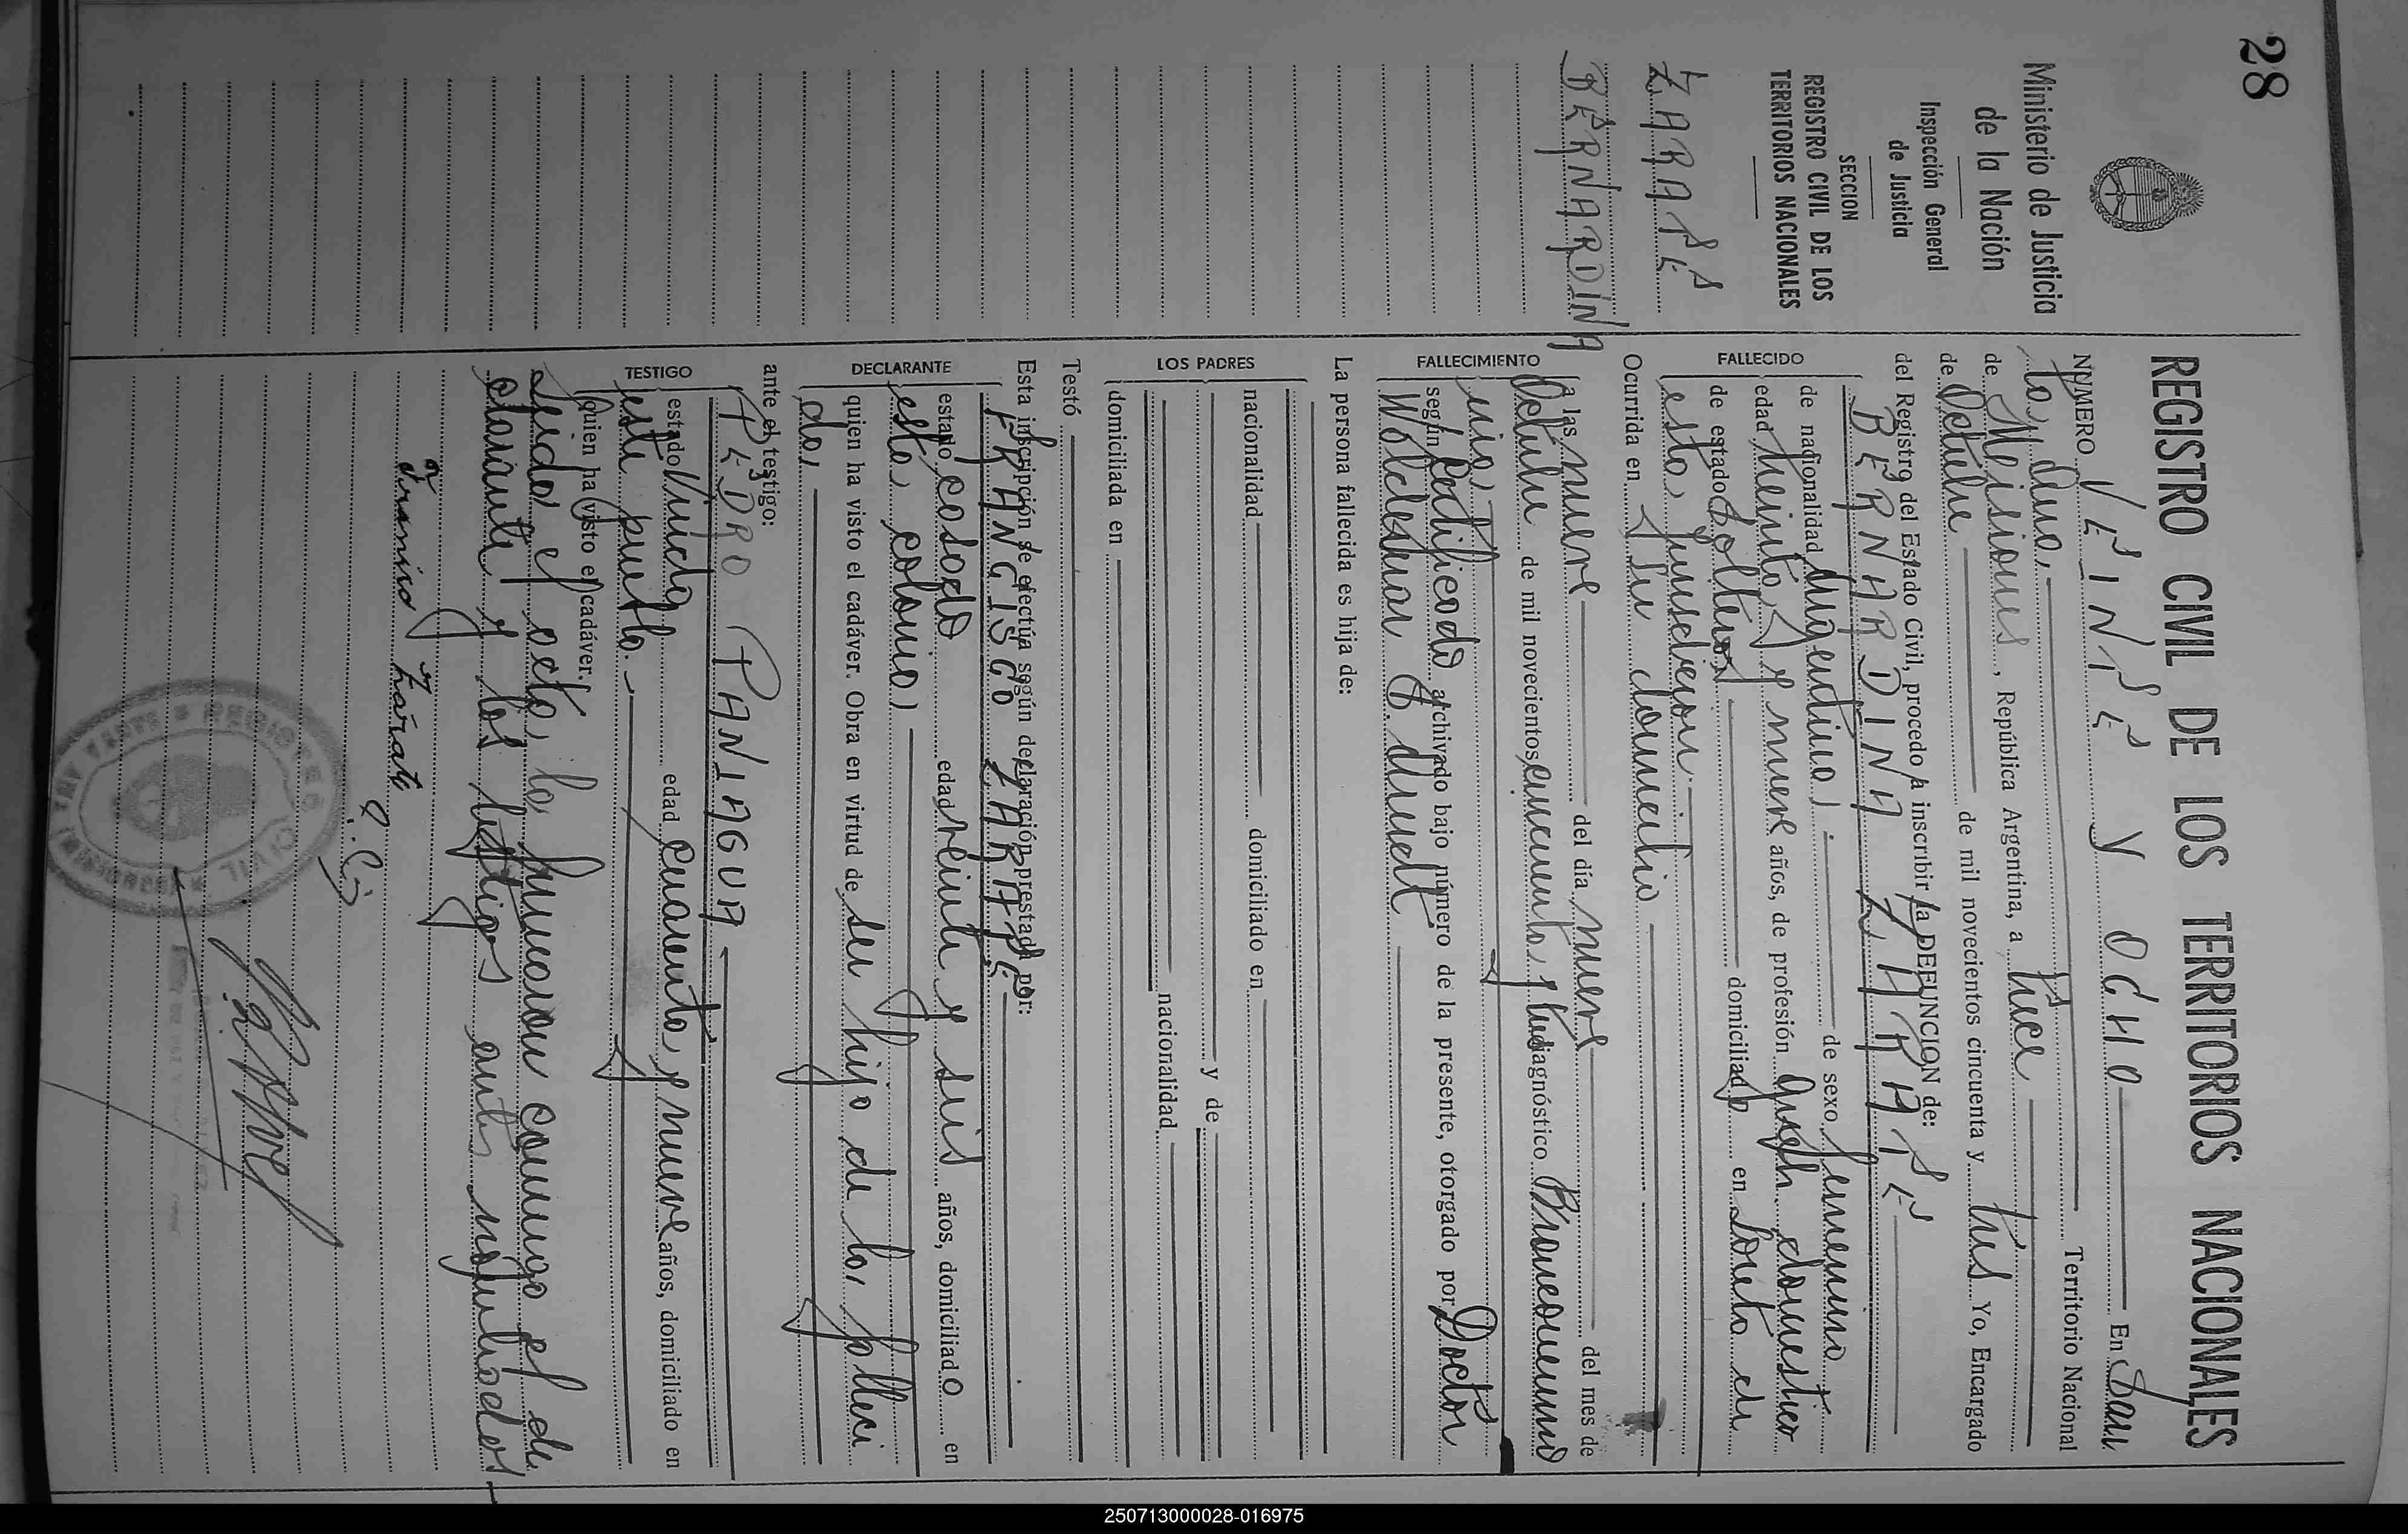 28
Ministerio de Justicia
de la Nación
Inspección General
de Justicia
SECCION
REGISTRO CIVIL DE LOS
TERRITORIOS NACIONALES
ZARATE
BERNARDINA
REGISTRO CIVIL DE LOS TERRITORIOS NACIONALES
NUMERO VEINTE Y OCHO En San
ta Ana, Territorio Nacional
de Misiones, República Argentina, a trece
de Octubre de mil novecientos cincuenta y tres Yo, Encargado
del Registro del Estado Civil, procedo a inscribir la DEFUNCION de:
BERNARDINA ZARATE
FALLECIDO
de nacionalidad Argentina, de sexo femenino
edad treinta y nueve años, de profesión Queh. domestico
de estado Soltera domiciliado en Loreto de
esta jurisdicion
Ocurrida en Su domicilio
FALLECIMIENTO
a las nueve del día nueve del mes de
Octubre de mil novecientos cincuenta y tres diagnóstico Bronconeumo
nia
según Certificado archivado bajo número de la presente, otorgado por Doctor
Woldemar
La persona fallecida es hija de:
LOS PADRES
nacionalidad domiciliado en
y de
nacionalidad
domiciliada en
Testó
Esta inscripción se efectúa según declaración prestada por:
DECLARANTE
FRANCISCO ZARATE
estado casado edad veinte y seis años, domiciliado en
esta colonia,
quien ha visto el cadáver. Obra en virtud de ser hijo de la falleci
da,
ante el testigo:
TESTIGO
PEDRO PANIAGUA
estado Viudo edad cuarenta y nueve años, domiciliado en
este pueblo.
quien ha visto el cadáver.
Leida el acta, la firmaron conmigo el de
clarante y los testigos antes nombrados.
Zarate
REGISTRO CIVIL
250713000028-016975